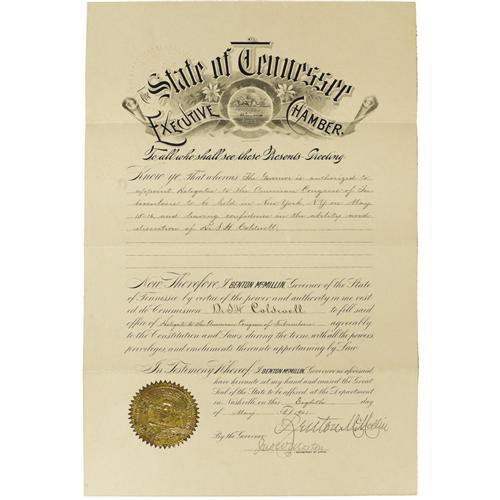 The State of Tennessee
Executive Chamber.
To all who shall see these Presents-Greeting
Know ye That whereas The Governor is authorized to
appoint Delegates to the American Congress of Tu-
berculosis to be held in New York, N.Y. on May
and having confidence in the ability and
discretion of Dr. S. H. Caldwell.
Now Therefore, I Benton McMillin, Governor of the State
of Tennessee by virtue of the power and authority in me vest
ed do Commission Dr. S. H. Caldwell to fill said
office of Delegate to the American Congress of Tuberculosis agreeably
to the Constitution and Laws, during the term, with all the powers,
privileges, and emoluments thereunto appertaining by Law
In Testimony Whereof I, Benton McMillin, Governor as aforesaid
have hereunto set my hand and caused the Great
Seal of the State to be affixed at the Department
in Nashville, on this Eighth day
of May
Benton McMillin
By the Governor
Jno W Morton
Secretary of State